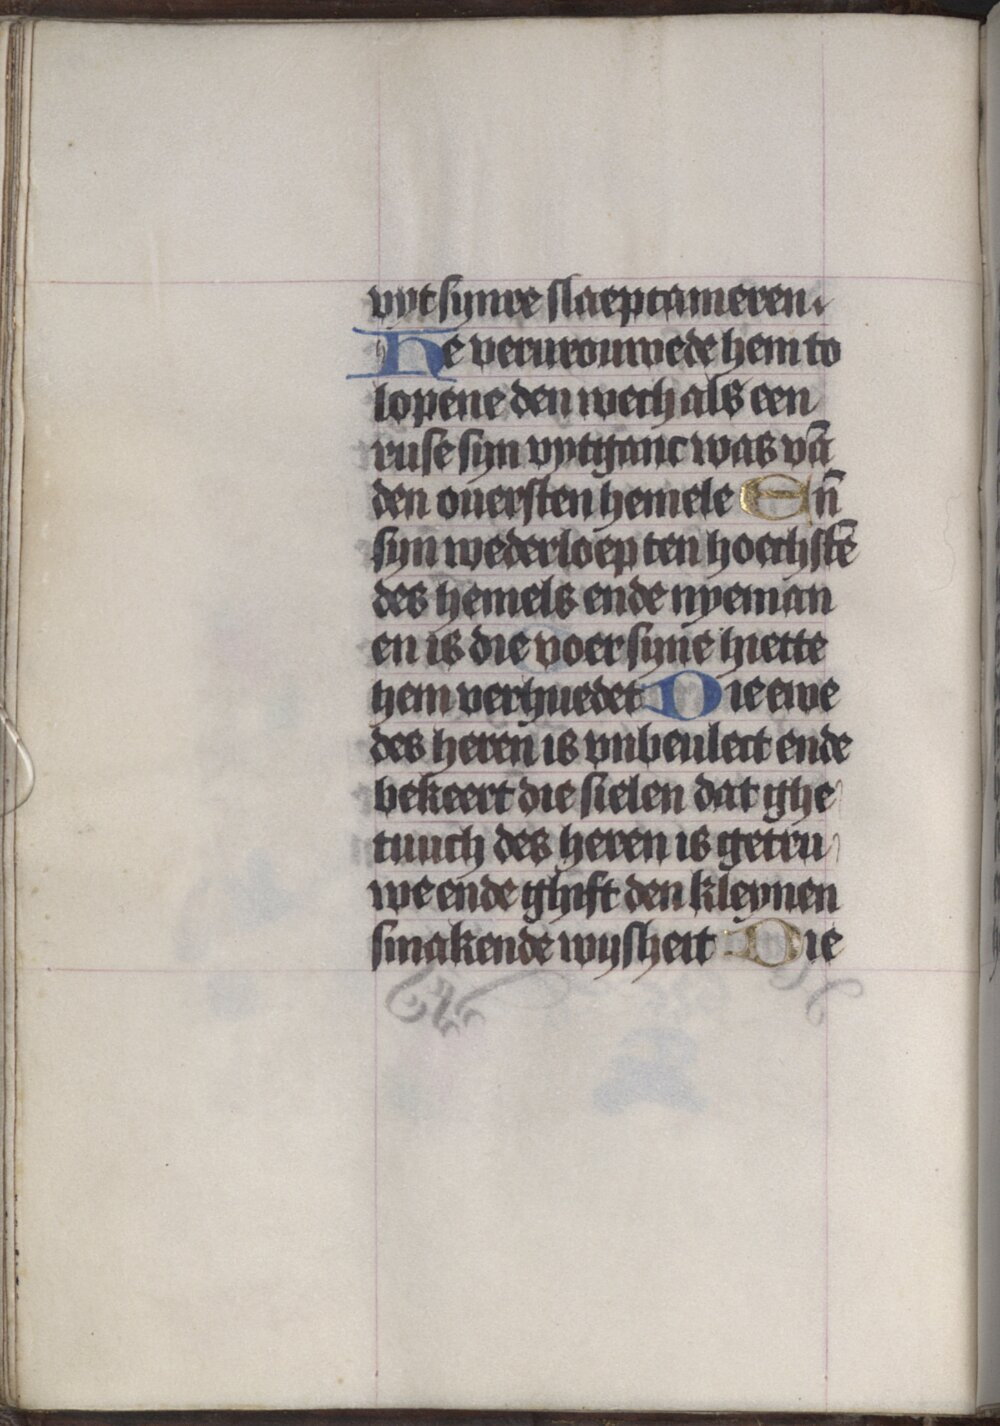 vyt synre slaepcameren.
He verurouwede hem to
lopene den wech als een
ruse syn vytganc was vā
den ouersten hemele En̄
syn wederloep ten hoechstē
des hemels ende nyeman
en is die voer syne hette
hem verhuedet Die ewe
des heren is vnbeulect ende
bekeert die sielen dat ghe
tuuch des heren is getru
we ende ghift den kleynen
smakende wysheit Die